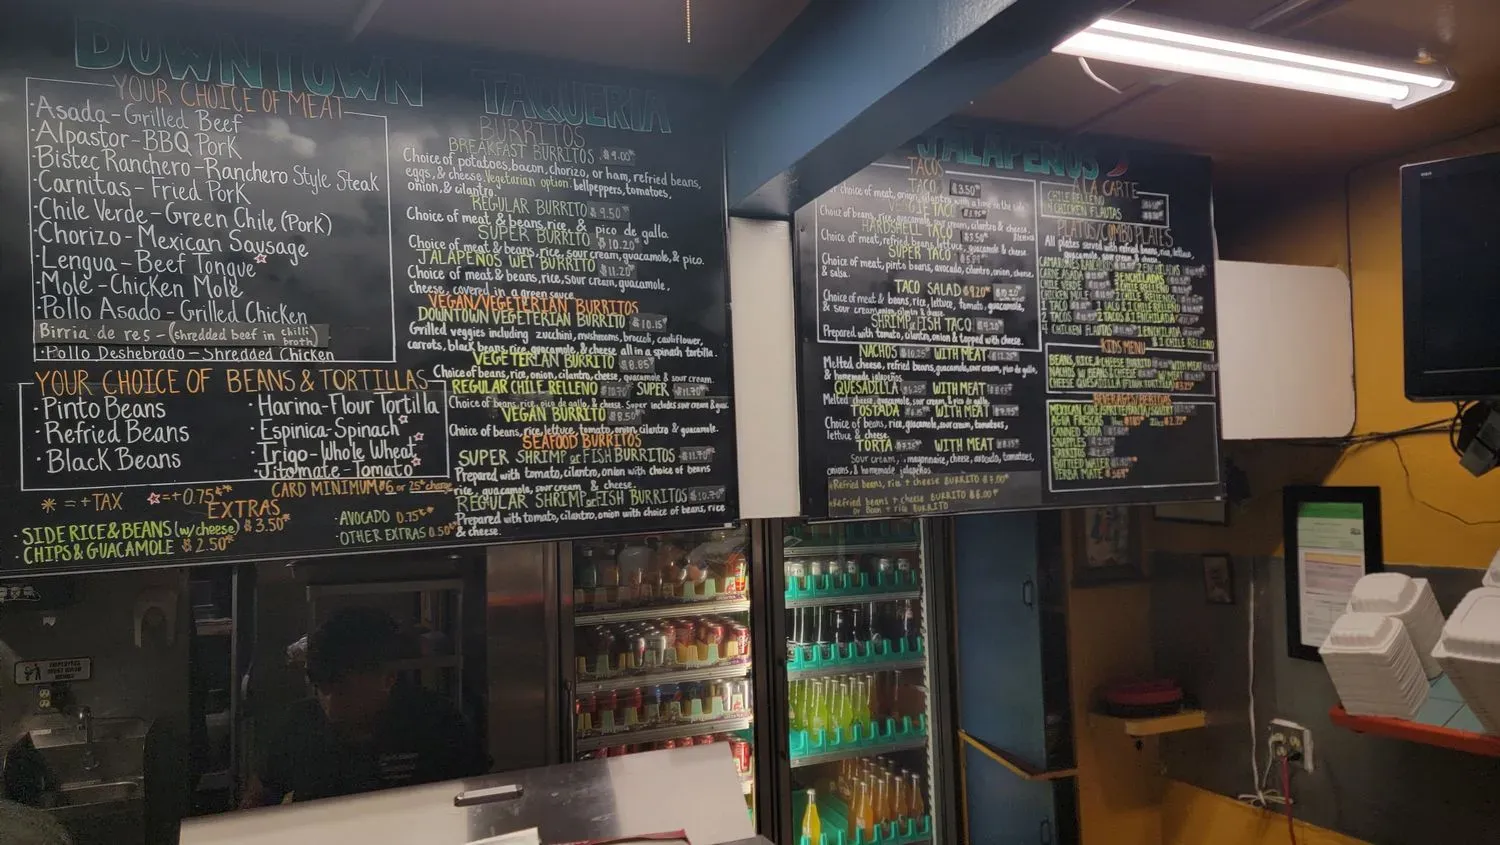 DOWNTOWN TAQUERIA
YOUR CHOICE OF MEAT
·Asada-Grilled Beef
·Alpastor-BBQ Pork
·Bistec Ranchero-Ranchero Style Steak
·Carnitas-Fried Pork
·Chile Verde-Green Chile (Pork)
·Chorizo-Mexican Sausage
·Lengua-Beef Tongue
·Mole-Chicken Mole
·Pollo Asado-Grilled Chicken
Birria de res-(shredded beef in chilli broth)
·Pollo Deshebrado-Shredded Chicken
YOUR CHOICE OF BEANS & TORTILLAS
·Pinto Beans
·Refried Beans
·Black Beans
·Harina-Flour Tortilla
·Espinica-Spinach
·Trigo-Whole Wheat
·Jitomate-Tomato
* = +TAX
=+0.75
CARD MINIMUM $6 or 25¢ charge
EXTRAS
·SIDE RICE & BEANS (w/cheese) $3.50*
·CHIPS & GUACAMOLE $2.50*
·AVOCADO 0.75*
·OTHER EXTRAS 0.50*
BURRITOS
BREAKFAST BURRITOS $9.00*
Choice of potatoes, bacon, chorizo, or ham, refried beans,
eggs, & cheese. Vegetarian option: bellpeppers, tomatoes,
onion, & cilantro.
REGULAR BURRITO $9.50*
Choice of meat & beans, rice, & pico de gallo.
SUPER BURRITO $10.20*
Choice of meat & beans, rice, sour cream, guacamole, & pico.
JALAPEÑOS WET BURRITO $11.20*
Choice of meat & beans, rice, sour cream, guacamole, &
cheese, covered in a green sauce
VEGAN/VEGETERIAN BURRITOS
DOWNTOWN VEGETERIAN BURRITO $10.15*
Grilled veggies including zucchini, mushrooms, broccoli, cauliflower,
carrots, black beans, rice, guacamole, & cheese all in a spinach tortilla.
VEGETERIAN BURRITO $8.85*
Choice of beans, rice, onion, cilantro, cheese, guacamole & sour cream.
REGULAR CHILE RELLENO $10.70* SUPER $11.70*
Choice of beans, rice, pico de gallo, & cheese. Super includes sour cream & guac.
VEGAN BURRITO $8.50*
Choice of beans, rice, lettuce, tomato, onion, cilantro & guacamole.
SEAFOOD BURRITOS
SUPER SHRIMP or FISH BURRITOS $11.70*
Prepared with tomato, cilantro, onion with choice of beans
rice, guacamole, sour cream & cheese.
REGULAR SHRIMP or FISH BURRITOS $10.70*
Prepared with tomato, cilantro, onion with choice of beans, rice
& cheese.
JALAPEÑOS
TACOS
TACO $3.50*
choice of meat, onion, cilantro with a lime on the side
HARDSHELL TACO
Choice of meat, refried beans, lettuce, guacamole & cheese
SUPER TACO
Choice of meat, pinto beans, avocado, cilantro, onion, cheese
& salsa.
TACO SALAD $9.20*
Choice of meat & beans, rice, lettuce, tomato, guacamole,
SHRIMP or FISH TACO
Prepared with tomato, cilantro, onion & topped with cheese.
NACHOS $10.25* WITH MEAT
Melted cheese, refried beans, guacamole, sour cream, pico de gallo,
& homemade jalapeños.
QUESADILLA WITH MEAT
Melted cheese, guacamole, sour cream, & pico de gallo.
TOSTADA WITH MEAT
Choice of beans, rice, guacamole, sour cream, tomatoes,
lettuce & cheese.
TORTA WITH MEAT
Sour cream, mayonnaise, cheese, avocado, tomatoes,
onions, & homemade jalapeños.
Refried beans, rice + cheese BURRITO $7.00*
Refried beans + cheese BURRITO $6.00*
or Bean + rice BURRITO
A LA CARTE
CHILE RELLENO
CHICKEN FLAUTAS
PLATOS/COMBO PLATES
All plates served with refried beans, rice, lettuce,
guacamole, sour cream & cheese
CARNE ASADA
CHILE VERDE
CHICKEN MOLE
2 TACOS
CHICKEN FLAUTAS
2 ENCHILADAS
2 CHILE RELLENOS
1 ENCHILADA
& 1 CHILE RELLENO
KIDS MENU
BEANS, RICE & CHEESE BURRITO WITH MEAT
CHEESE QUESADILLA (FLOUR TORTILLA)
BEVERAGES/BEBIDAS
AGUA FRESCAS
CANNED SODA
SNAPPLES
JARRITOS
BOTTLED WATER
YERBA MATE
EMPLOYEES
MUST WASH
HANDS